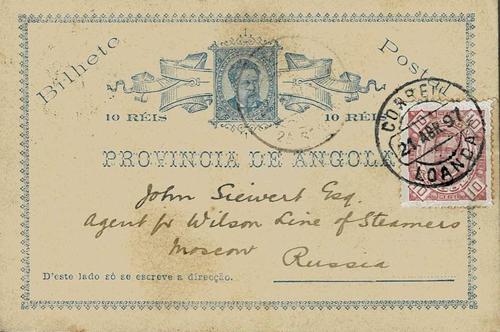 Bilhete Postal
10 RÉIS 10 RÉIS
PROVINCIA DE ANGOLA
CORREIO
21 ABR. 97
LOANDA
10 10
John Siewert Esq.
Agent for Wilson Line of Steamers
Moscow Russia
D'este lado só se escreve a direcção.